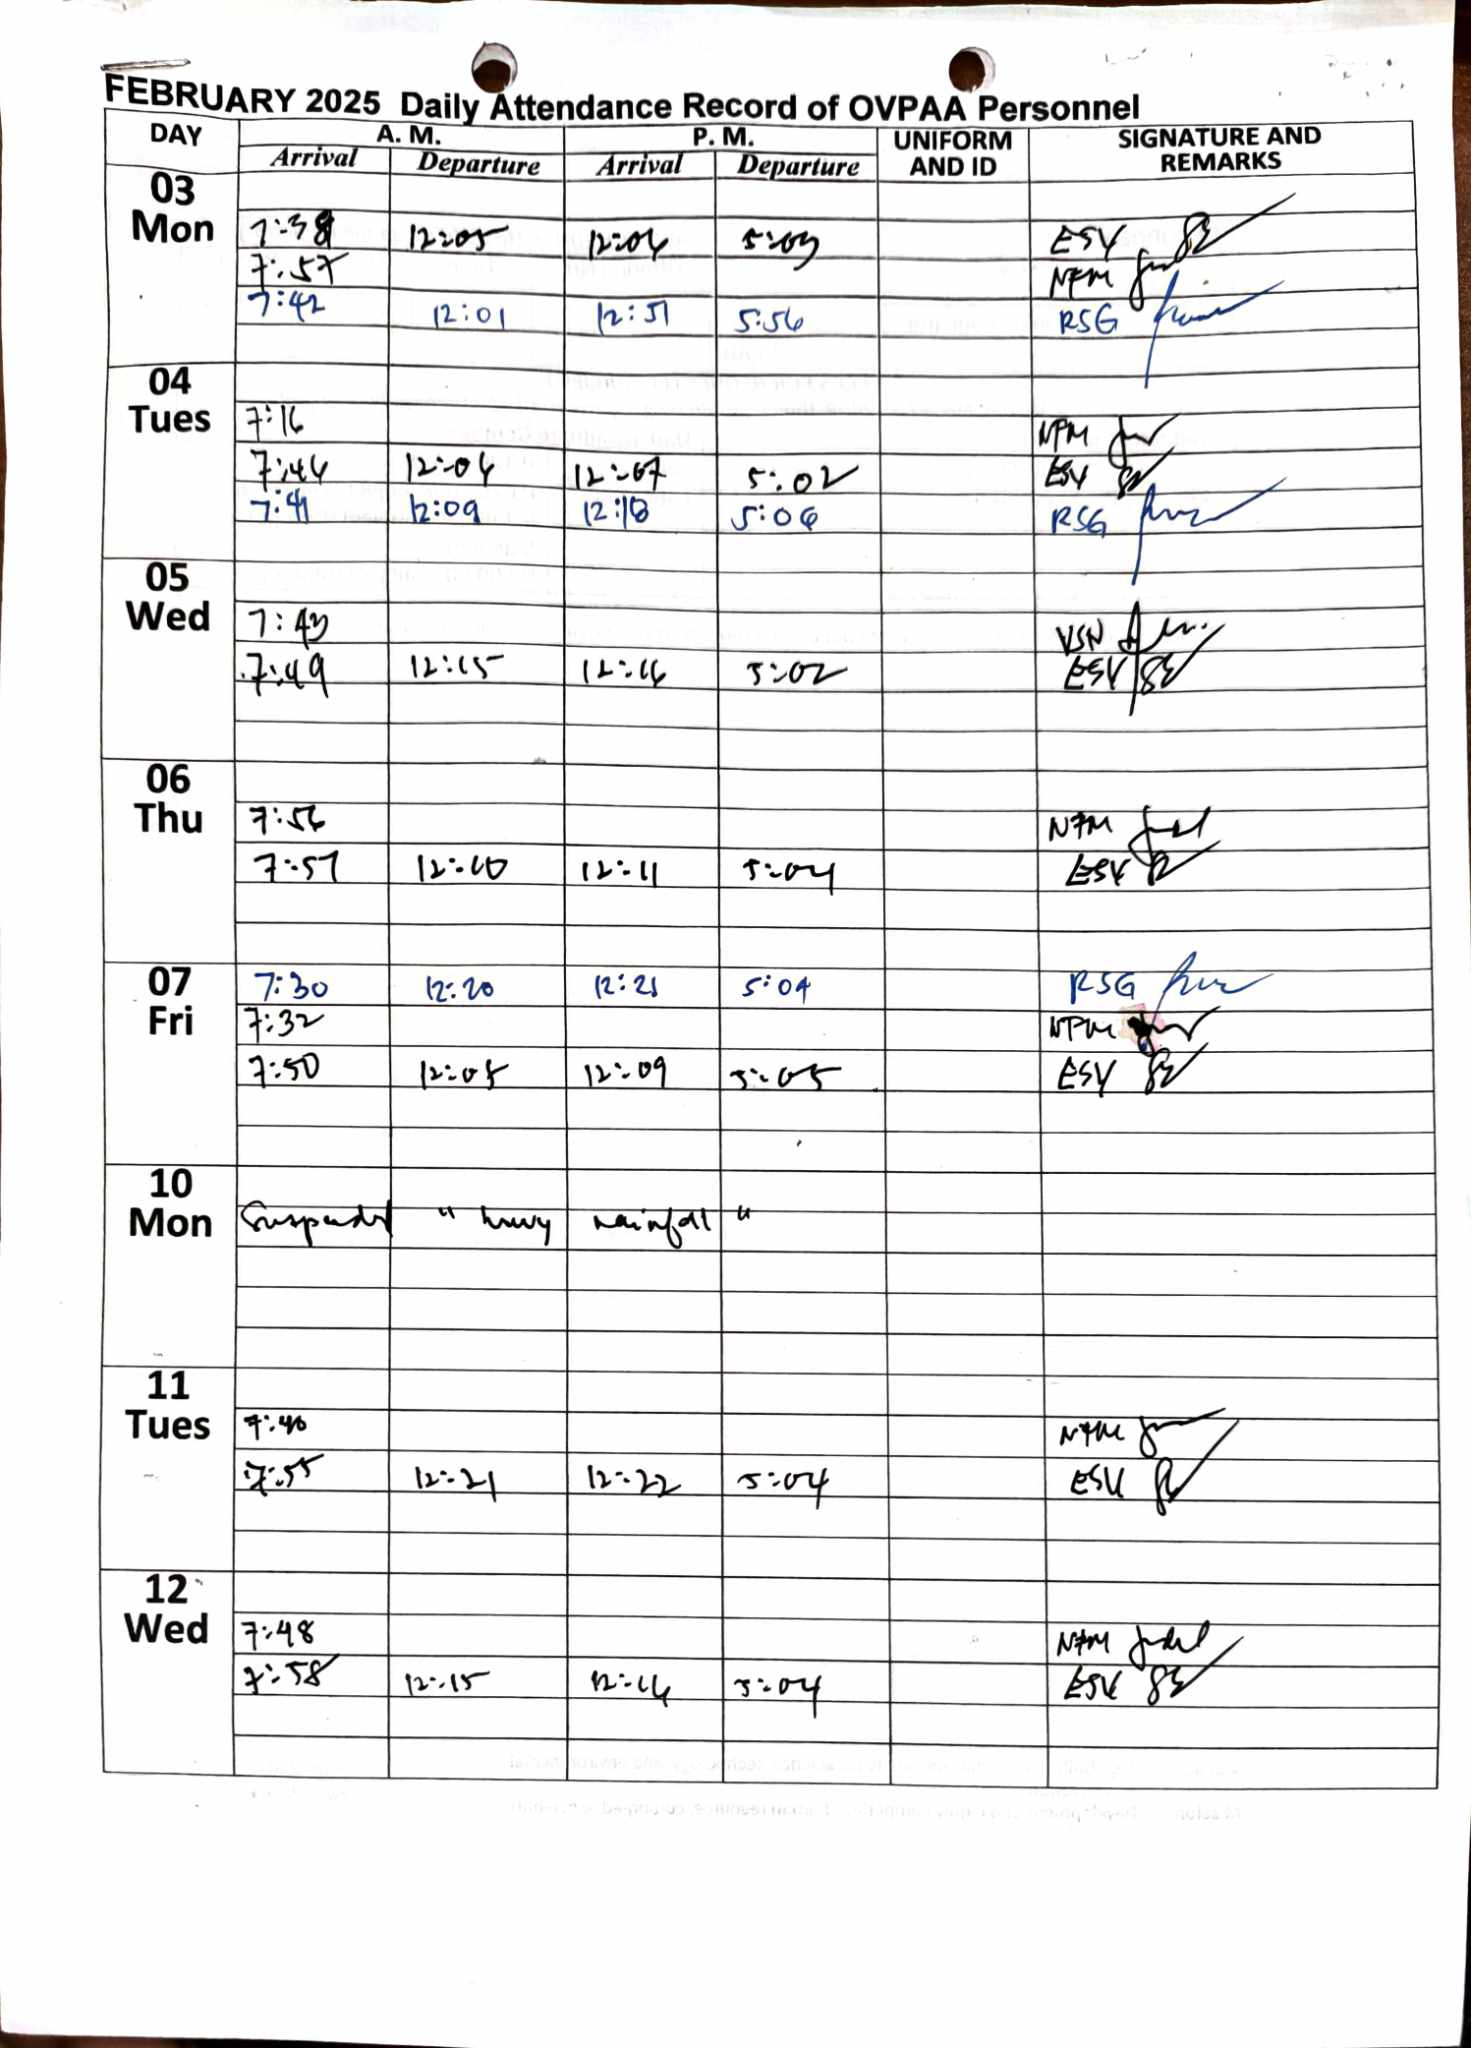 FEBRUARY 2025 Daily Attendance Record of OVPAA Personnel
DAY A. M. P. M. UNIFORM AND ID SIGNATURE AND REMARKS
Arrival Departure Arrival Departure
03 Mon
7:38 12:05 12:06 5:03 ESV
7:57 NFM
7:42 12:01 12:51 5:56 RSG
04 Tues
7:16 NFM
7:46 12:06 12:07 5:02 ESV
7:41 12:09 12:18 5:06 RSG
05 Wed
7:43 VSN
7:49 12:15 12:16 5:02 ESV
06 Thu
7:56 NFM
7:57 12:10 12:11 5:04 ESV
07 Fri
7:30 12:20 12:21 5:04 RSG
7:32 NFM
7:50 12:05 12:09 5:05 ESV
10 Mon
Suspended " heavy rainfall "
11 Tues
7:40 NFM
7:55 12:21 12:22 5:04 ESV
12 Wed
7:48 NFM
7:58 12:15 12:16 5:04 ESV